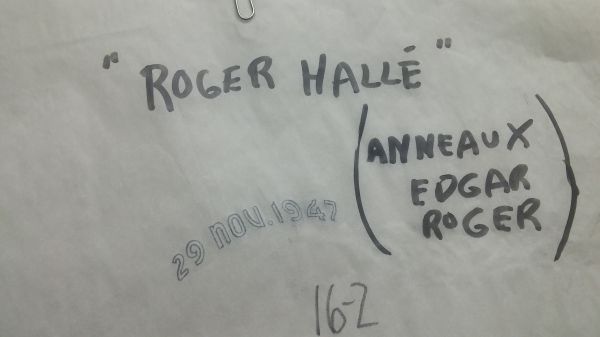 "ROGER HALLÉ"
(ANNEAUX
EDGAR
ROGER)
29 NOV. 1947
16-2